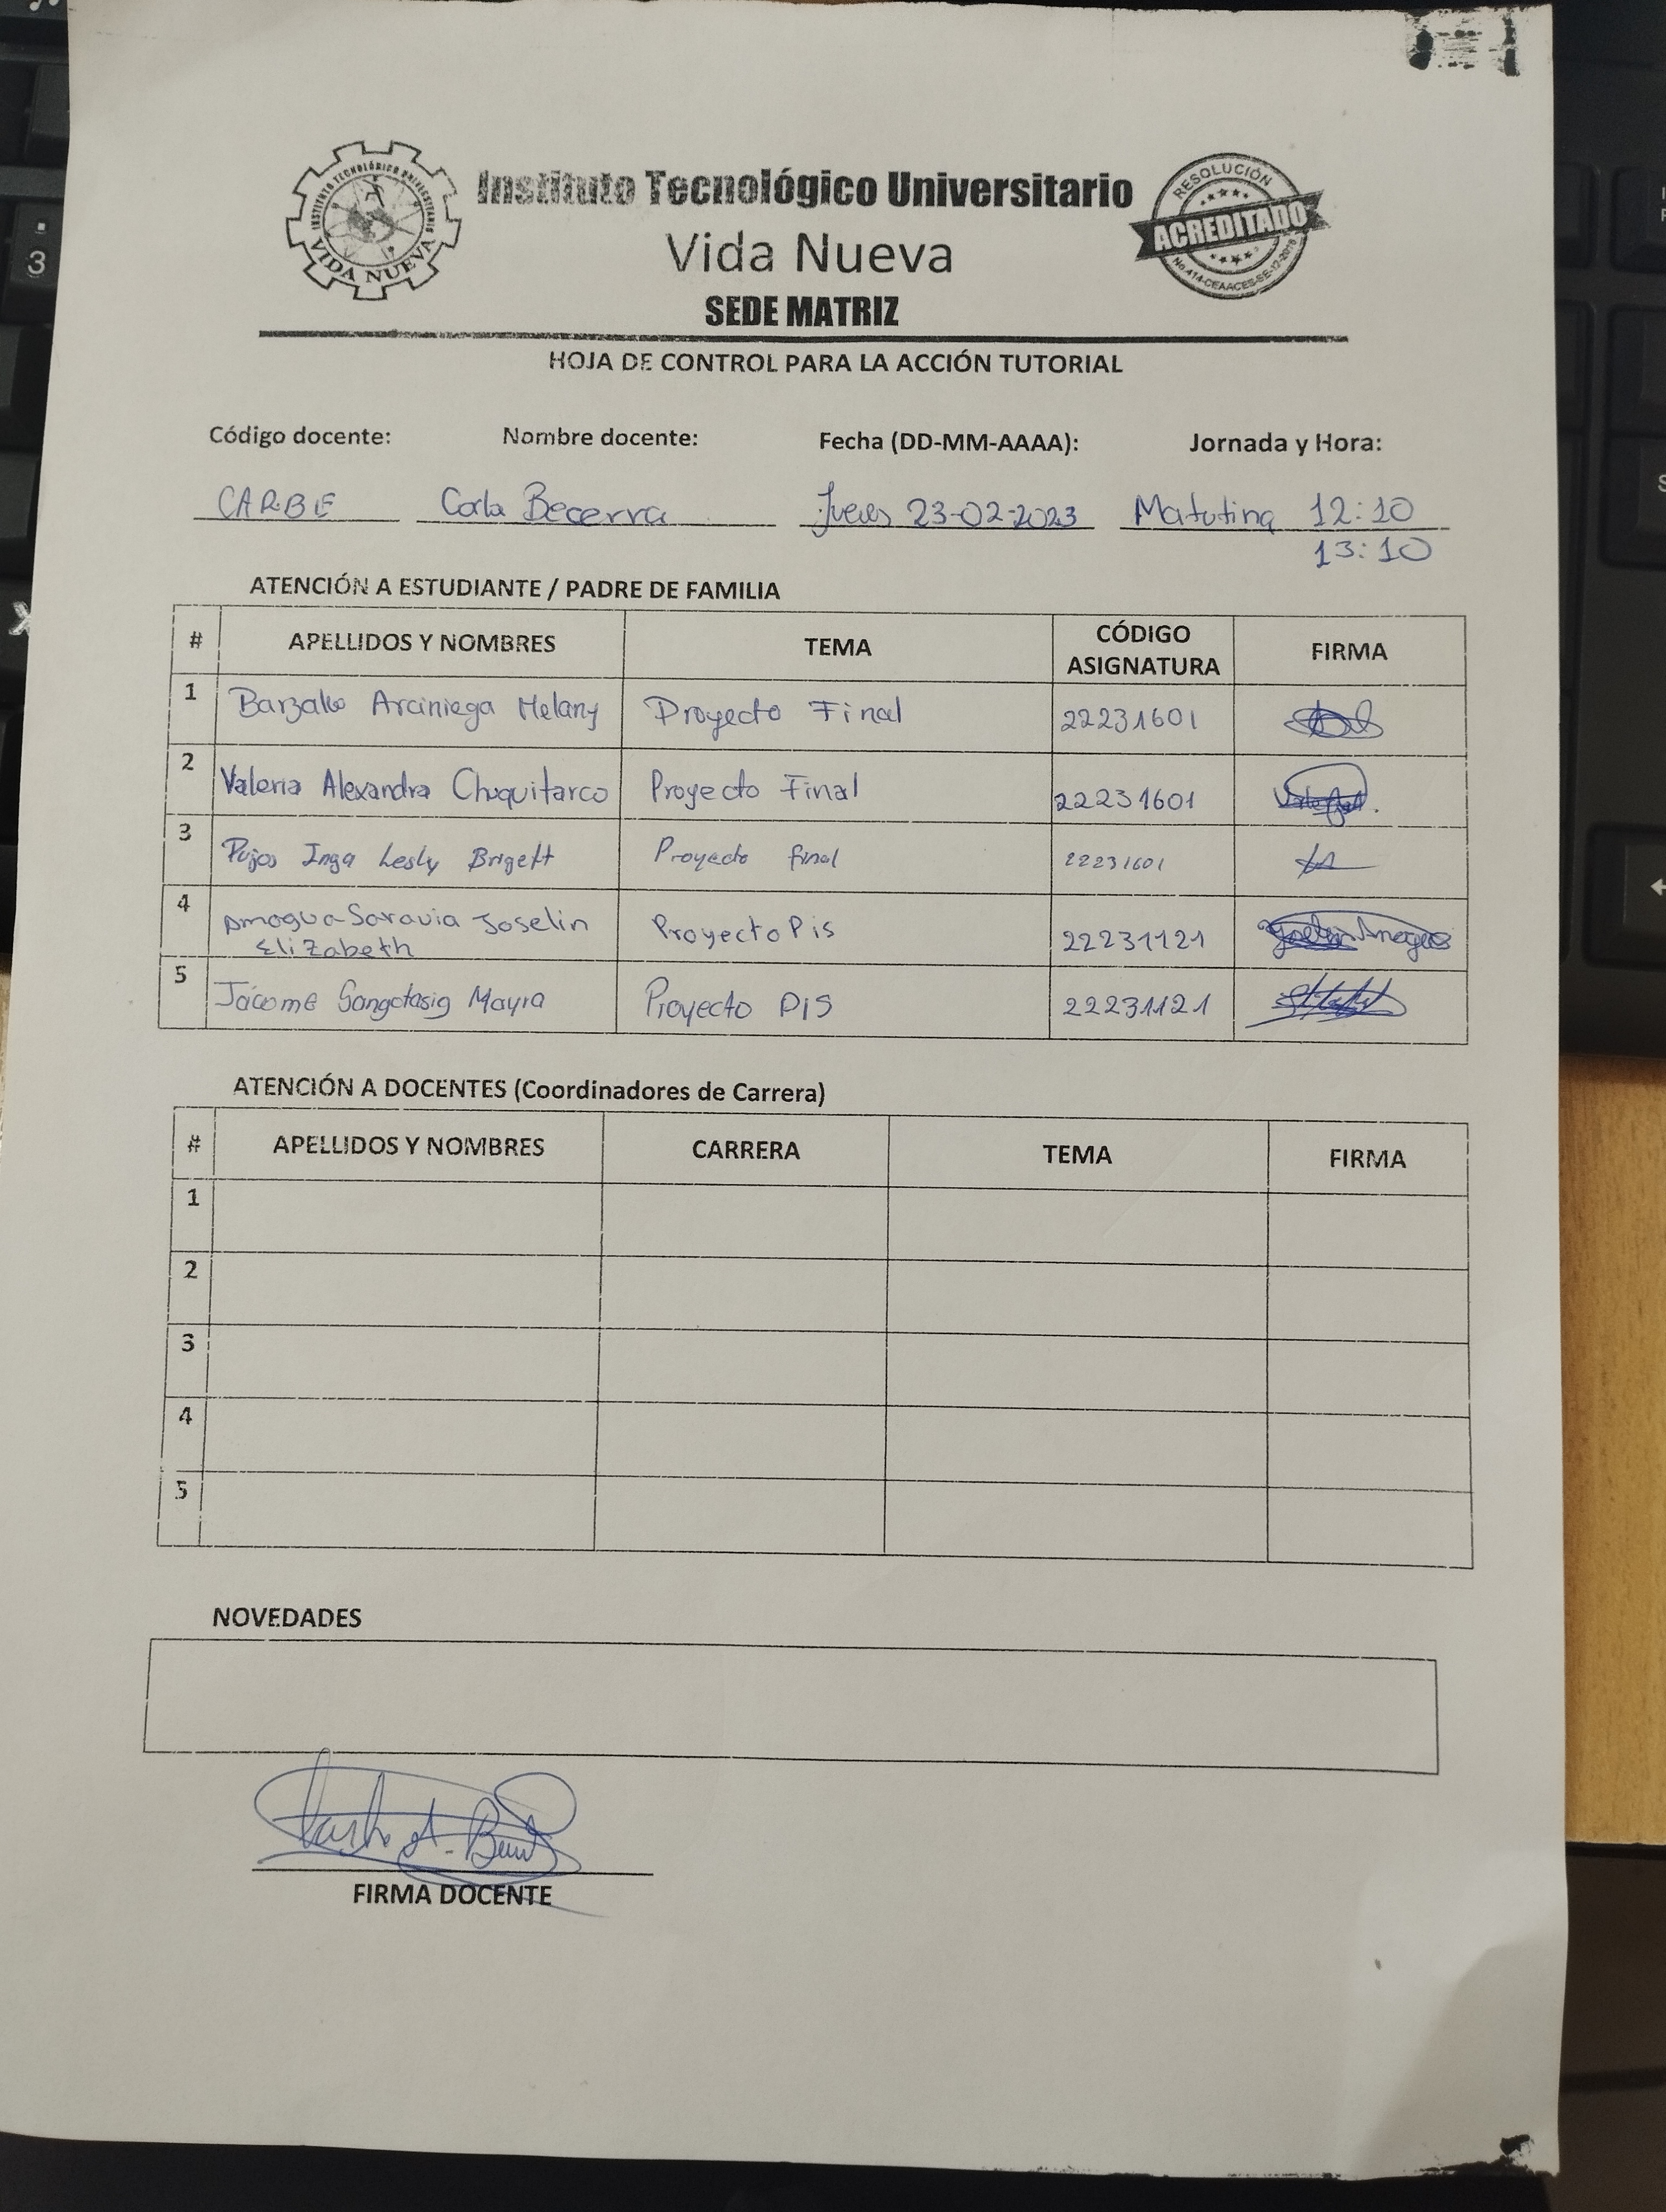 INSTITUTO TECNOLÓGICO UNIVERSITARIO
VIDA NUEVA
Instituto Tecnológico Universitario
Vida Nueva
SEDE MATRIZ
RESOLUCIÓN
ACREDITADO
HOJA DE CONTROL PARA LA ACCIÓN TUTORIAL
Código docente: Nombre docente: Fecha (DD-MM-AAAA): Jornada y Hora:
CARBE Carla Becerra Jueves 23-02-2023 Matutina 12:10
13:10
ATENCIÓN A ESTUDIANTE / PADRE DE FAMILIA
# APELLIDOS Y NOMBRES TEMA CÓDIGO ASIGNATURA FIRMA
1 Barzallo Arciniega Melany Proyecto Final 22231601
2 Valeria Alexandra Chuquitarco Proyecto Final 22231601
3 Pujos Inga Lesly Brigett Proyecto final 22231601
4 Amagua Saravia Joselin Elizabeth Proyecto Pis 22231121
5 Jácome Gangotasig Mayra Proyecto PIS 22231121
ATENCIÓN A DOCENTES (Coordinadores de Carrera)
# APELLIDOS Y NOMBRES CARRERA TEMA FIRMA
1
2
3
4
5
NOVEDADES
FIRMA DOCENTE
3